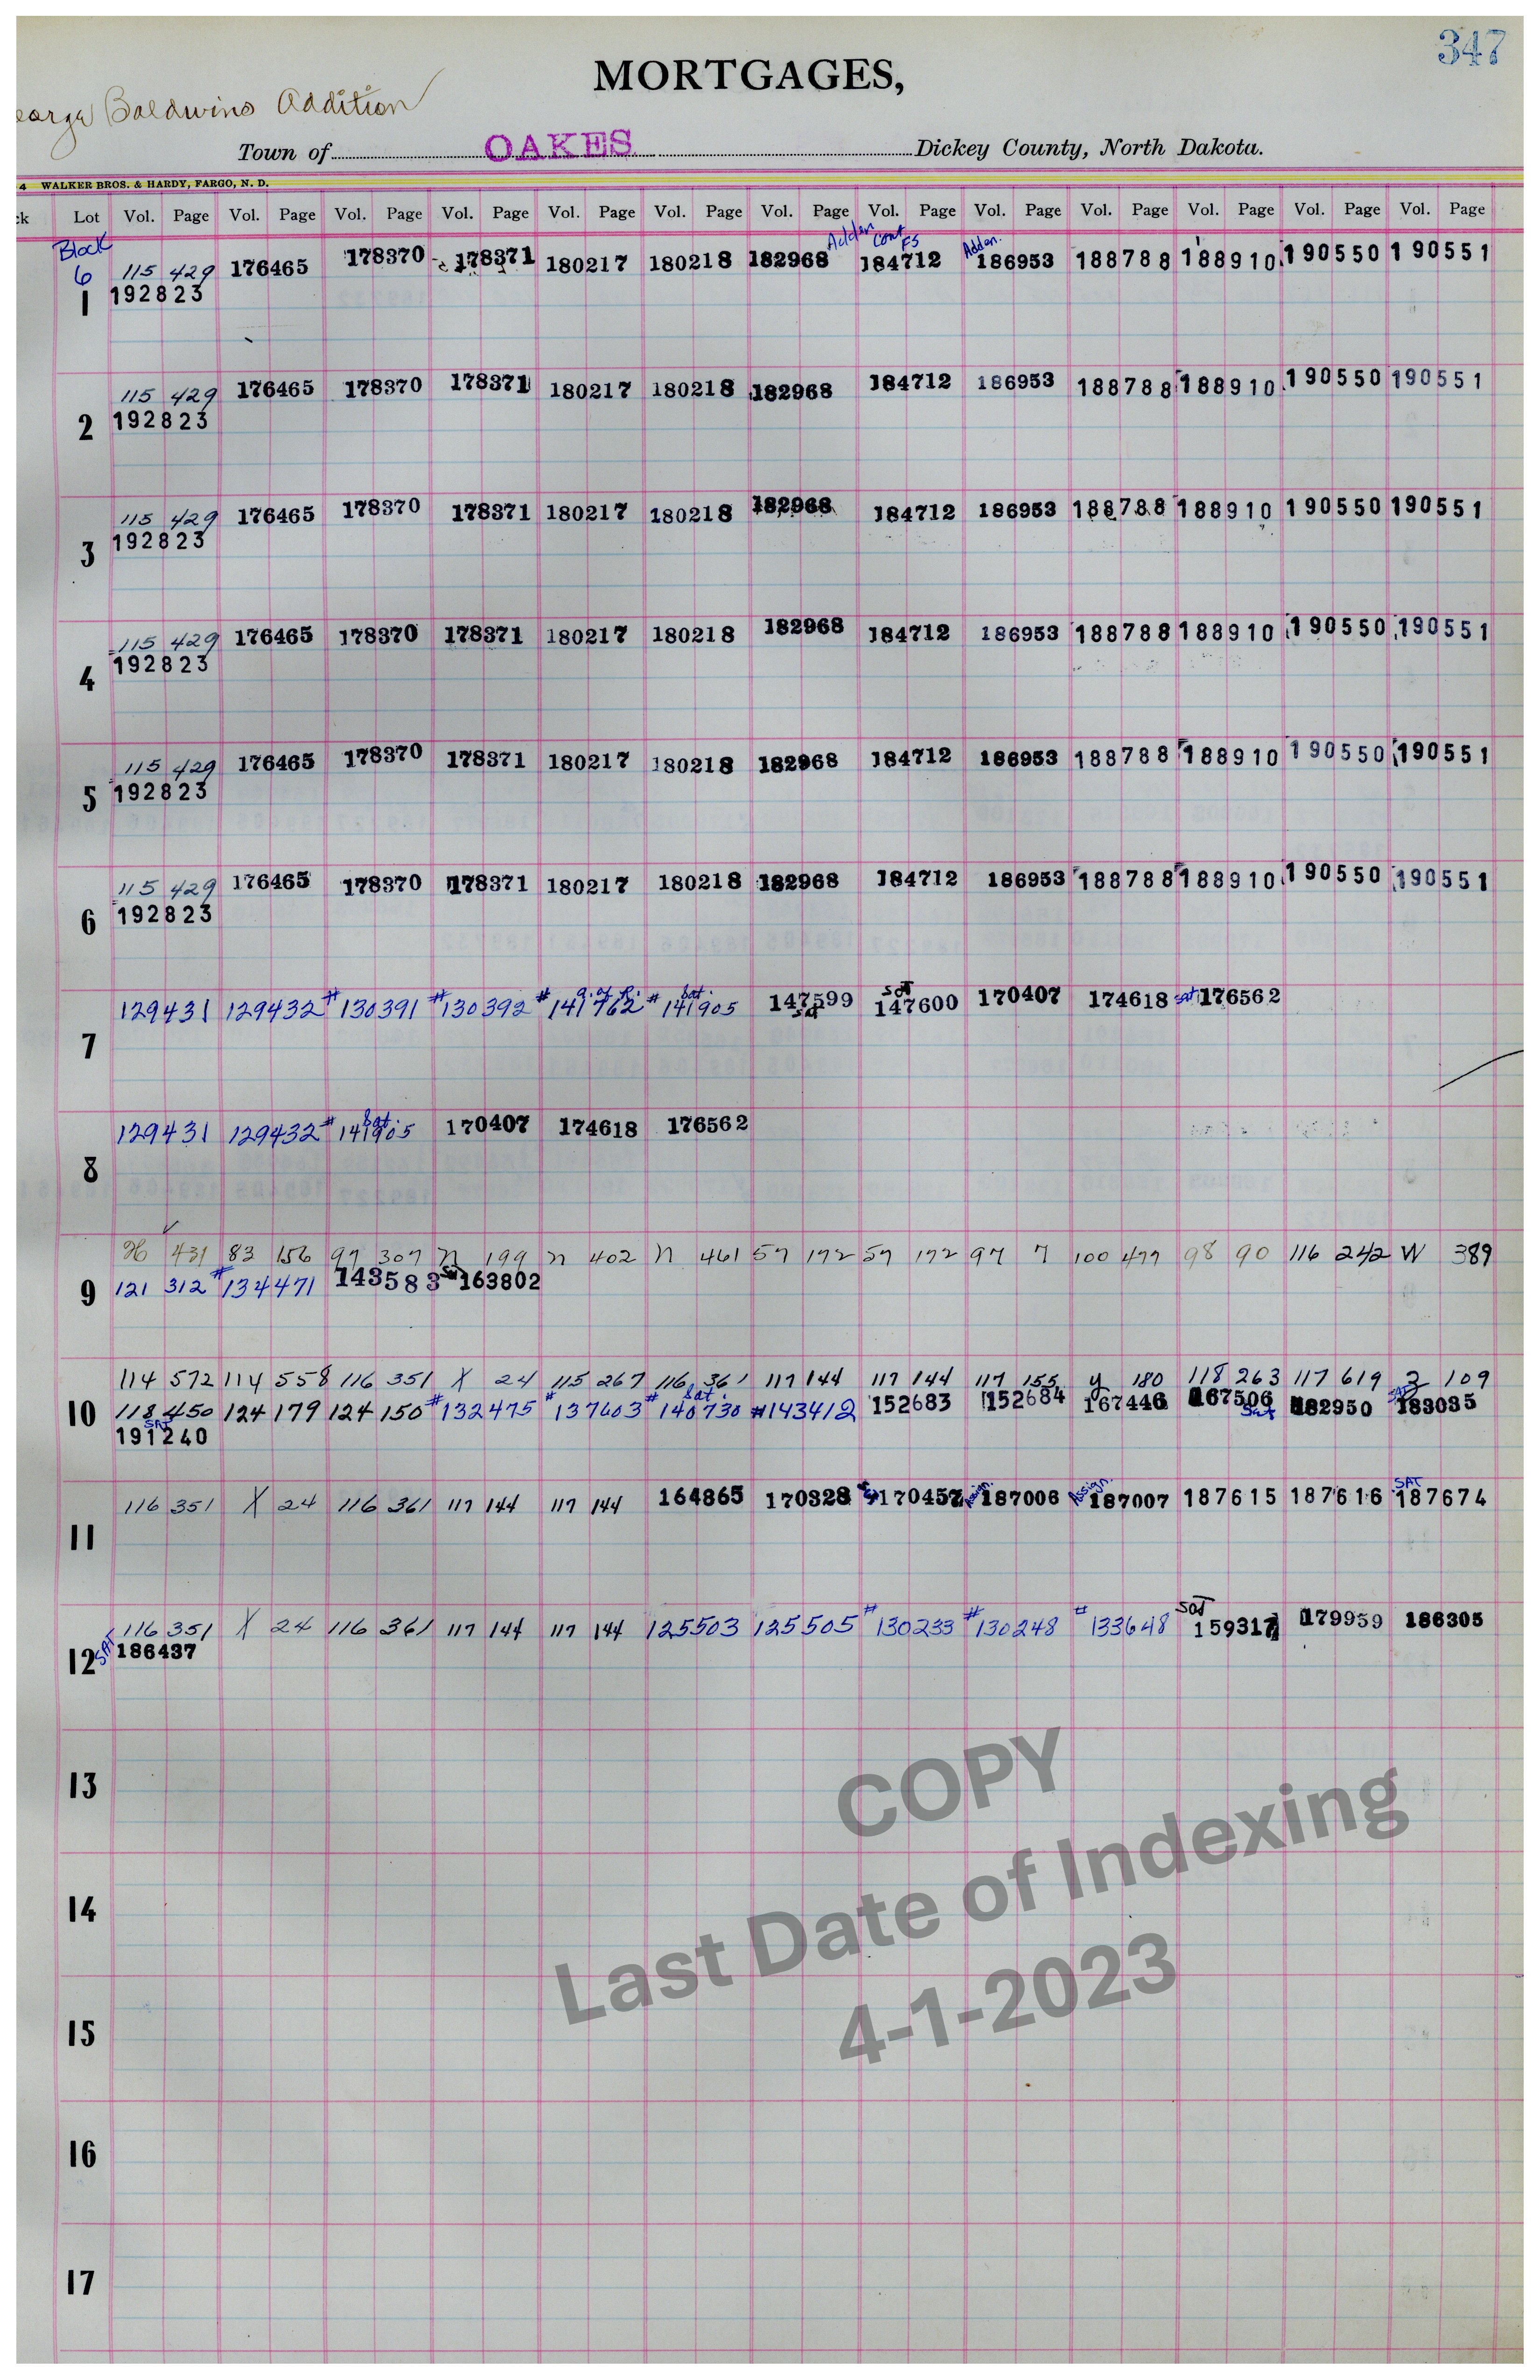 347
MORTGAGES,
earge Baldwins Addition
Town of OAKES Dickey County, North Dakota.
4 WALKER BROS. & HARDY, FARGO, N. D.
ck Lot Vol. Page Vol. Page Vol. Page Vol. Page Vol. Page Vol. Page Vol. Page Vol. Page Vol. Page Vol. Page Vol. Page Vol. Page Vol. Page
Block Adden cont FS Adden.
6 115 429 176465 178370 178371 180217 180218 182968 184712 186953 188788 188910 190550 190551
1 192823
115 429 176465 178370 178371 180217 180218 182968 184712 186953 188788 188910 190550 190551
2 192823
115 429 176465 178370 178371 180217 180218 182968 184712 186953 188788 188910 190550 190551
3 192823
115 429 176465 178370 178371 180217 180218 182968 184712 186953 188788 188910 190550 190551
4 192823
115 429 176465 178370 178371 180217 180218 182968 184712 186953 188788 188910 190550 190551
5 192823
115 429 176465 178370 178371 180217 180218 182968 184712 186953 188788 188910 190550 190551
6 192823
a. of R. Sat. sat
129431 129432 #130391 #130392 #141762 #141905 147599 147600 170407 174618 sat 176562
7 sat
Sat.
129431 129432 #141905 170407 174618 176562
8
431 83 156 97 307 n 199 n 402 n 461 57 172 57 172 97 7 100 477 98 90 116 242 W 389
9 121 312 #134471 143583 sat 163802
114 572 114 558 116 351 X 24 115 267 116 361 117 144 117 144 117 155 y 180 118 263 117 619 3 109
Sat.
10 118 450 124 179 124 150 #132475 #137603 #140730 #143412 152683 152684 167446 167506 Sat 182950 SAT 183085
SAT
191240
SAT
116 351 X 24 116 361 117 144 117 144 164865 170328 170457 Assign. 187006 Assign. 187007 187615 187616 187674
11
SAT
116 351 X 24 116 361 117 144 117 144 125503 125505 #130233 #130248 #133648 159317 179959 186305
12 SAT 186437
13
14
15
16
17
COPY
Last Date of Indexing
4-1-2023